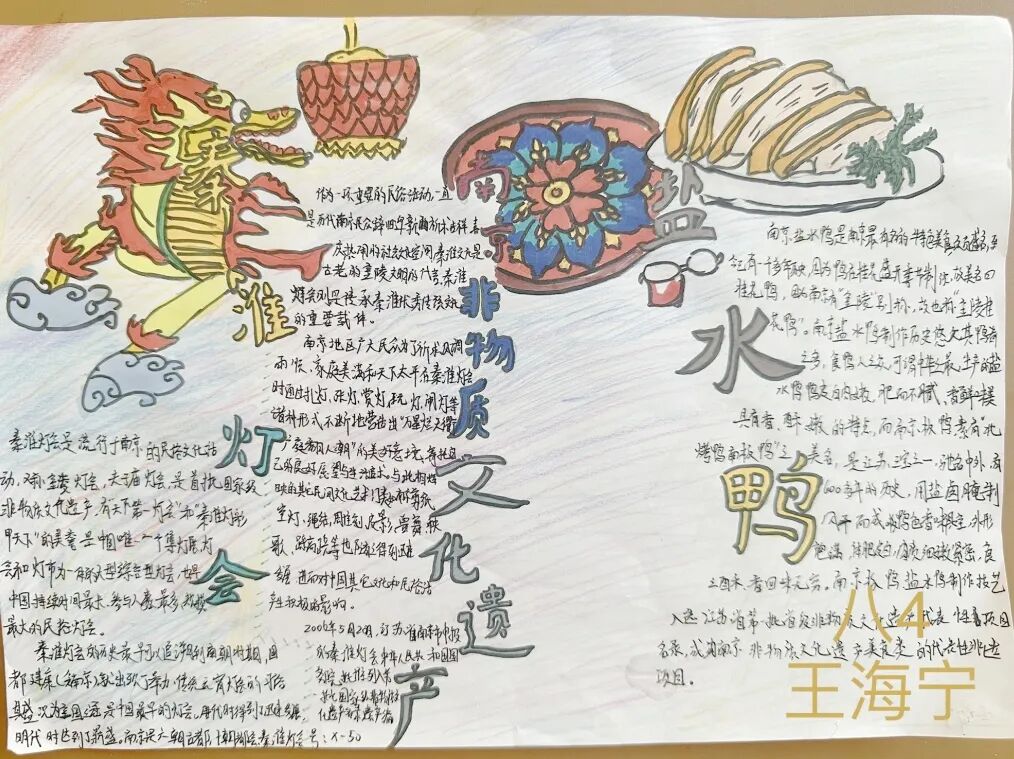 秦
淮
灯
会
秦淮灯会是流行于南京的民俗文化活
动，又称金陵灯会、夫子庙灯会，是首批国家级
非物质文化遗产，有"天下第一灯会"和"秦淮灯彩
甲天下"的美誉，是中国唯一一个集灯展、灯
会和灯市为一体的大型综合型灯会，也是
中国持续时间最长、参与人数最多、规模
最大的民俗灯会。
秦淮灯会的历史最早可以追溯到南朝时期，国
都建康
明代时达到了鼎盛。
作为一环重要的民俗活动，一直
是历代南京民众辞旧年、新
古老的金陵文明的
的重要载体。
南京地区广大民众为了祈求风调
雨顺、家庭美满和天下太平，在秦淮灯会
时通过扎灯、张灯、赏灯、玩灯、闹灯等
诸种形式，不断地营造出"万星烂天衢
广庭翻人潮"的美好意境，
己的良好展望与生活追求。与此相辉
映的其它民间文化艺术
空竹、绳结、雕刻、皮影、
歌、踩高跷等也随之得到延
续，进而对中国其它文化和民俗活
产生积极的影响。
2006年5月20日，江苏省南京市申报
的秦淮灯会经中华人民共和国国
务院批准列入第
一批国家级非物质文
化遗产
南
京
非
物
质
文
化
遗
产
盐
水
鸭
南京盐水鸭是南京最有名的特色美食，
桂花鸭，
花鸭"。南京盐水鸭制作历史悠久，
水鸭鸭皮白肉嫩、肥而不腻、香鲜味美，
具有香、酥、嫩的特点，而南京板鸭素有"北
烤鸭南板鸭"之美名，是江苏三宝之一，驰名中外，有
600多年的历史，用盐卤腌制
风干而成，板鸭色香味俱全，外形
饱满，体肥皮白，肉质细嫩紧密，食
之酥、香，回味无穷。南京板鸭、盐水鸭制作技艺
入选江苏省第一批省级非物质文化遗产代表性项目
名录，成为南京非物质文化遗产美食类的代表性非遗
项目。
八4
王海宁